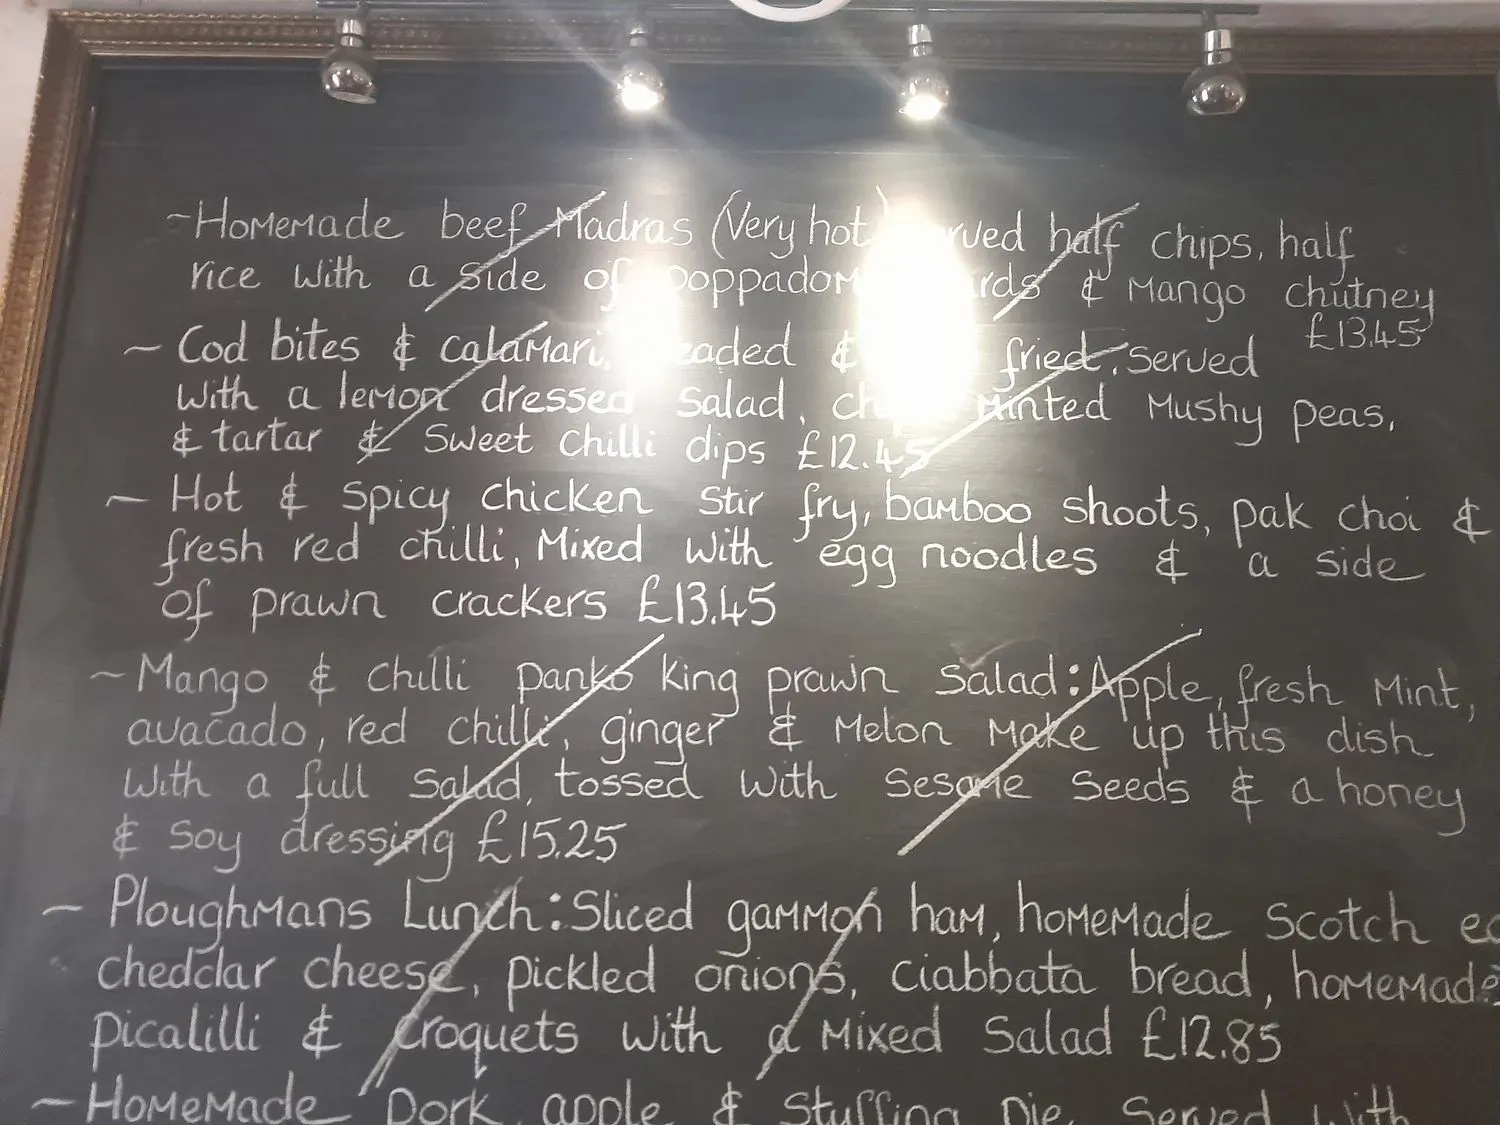 ~Homemade beef Madras (Very hot) served half chips, half
rice with a side of poppadom & Mango chutney
£13.45
~ Cod bites & calamari, fried, served
with a lemon dressed salad, minted Mushy peas,
& tartar & sweet chilli dips £12.45
~ Hot & spicy chicken stir fry, bamboo shoots, pak choi &
fresh red chilli, Mixed with egg noodles & a side
of prawn crackers £13.45
~ Mango & chilli panko king prawn salad: Apple, fresh Mint,
avacado, red chilli, ginger & Melon Make up this dish
with a full salad, tossed with sesame seeds & a honey
& soy dressing £15.25
~ Ploughmans Lunch: Sliced gammon ham, homemade Scotch
cheddar cheese, pickled onions, ciabbata bread, homemade
picalilli & croquets with a Mixed Salad £12.85
~ Homemade Pork, apple & stuffing pie. Served with